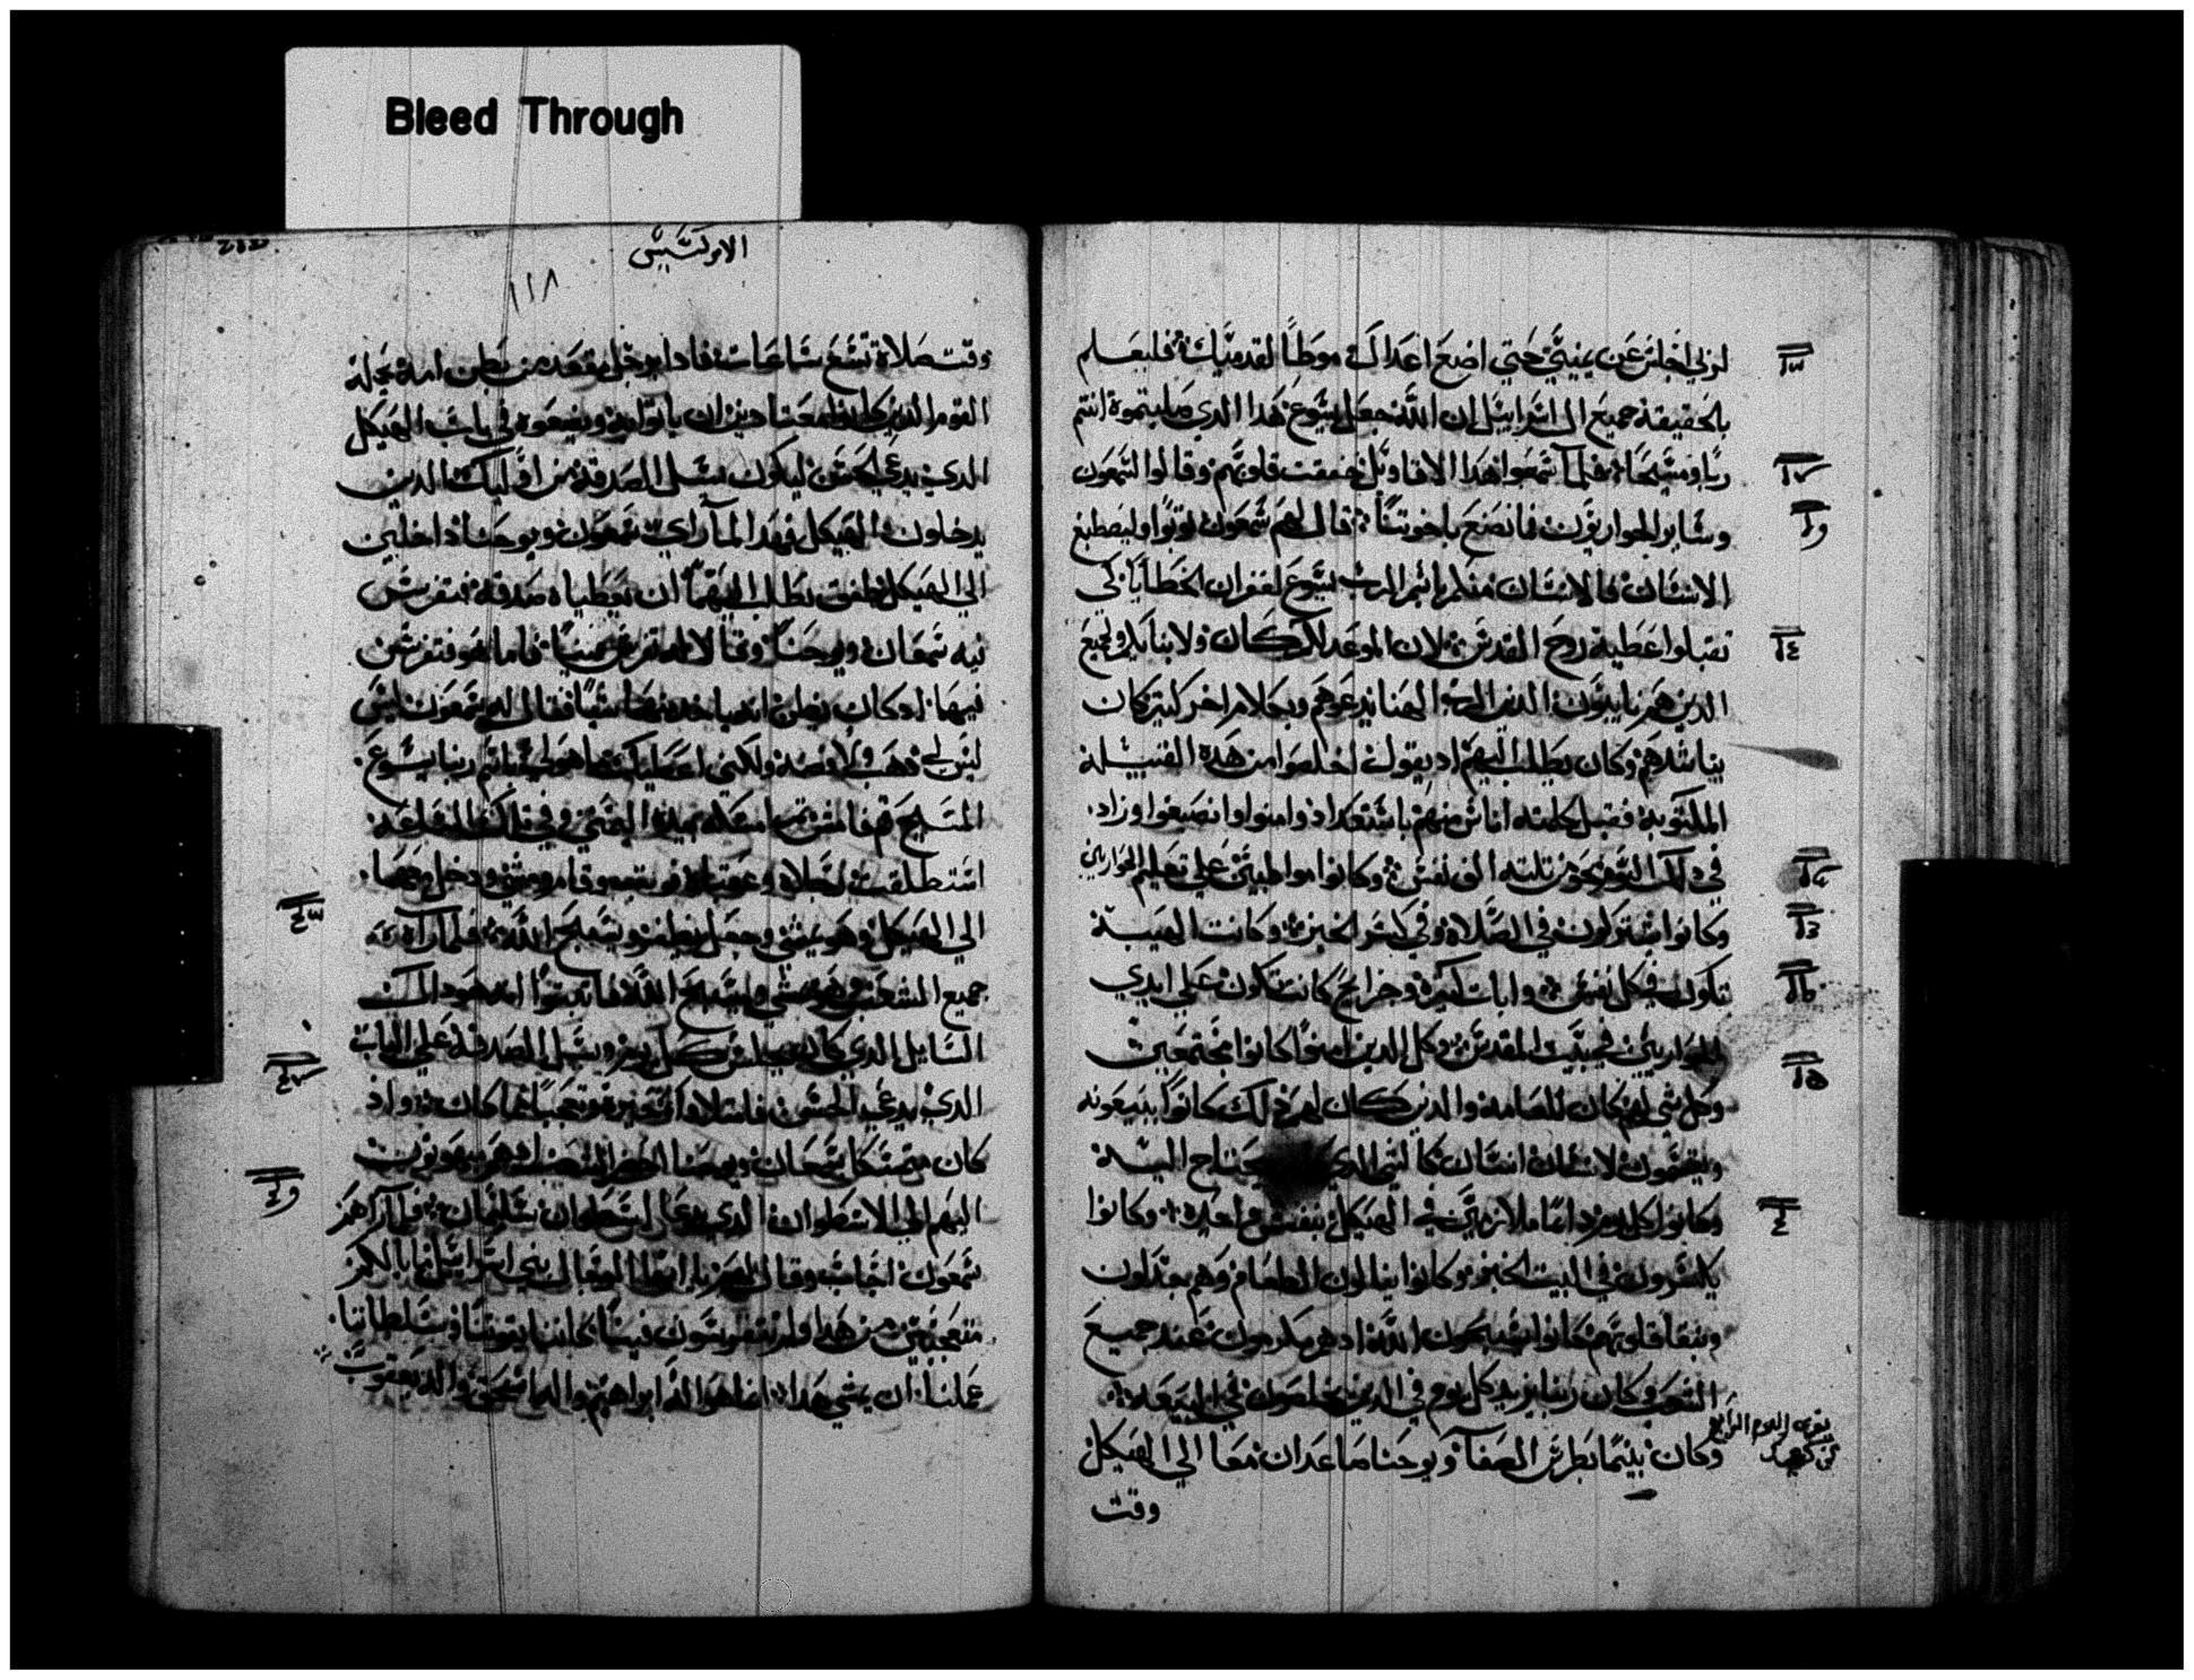 Bleed Through
لربي اجلس عن يميني حتي اضع اعداك موطأ لقدميك فليعلم
بالحقيقة جميع ال اسراييل ان الله جعل يسوع هذا الدي صلبتموه انتم
ربا ومسيحا فلما سمعوا هذا الاقاويل خفقت قلوبهم وقالوا لشمعون
وساير الحواريون فما نصنع ياخوتنا قال لهم شمعون توبوا وليصطبغ
الانسان فالانسان منكم باسم الرب يسوع لغفران الخطايا كي
تقبلوا عطية روح القدس لان الموعد لكم كان ولابنايكم ولجميع
الدين هم نايون الدين الرب الهنا يدعوهم وبكلام اخر كتير كان
يناشدهم وكان يطلب اليهم اد يقول اخلصوا من هذه القبيلة
الملتوية فقبل كلمته اناس منهم باستعداد وامنوا وانصبغوا وزاد
في دلك اليوم نحو من تلتة الف نفس وكانوا مواظبين علي تعليم الحواريين
وكانوا يشتركون في الصلاة وفي كسر الخبز وكانت الهيبة
تكون في كل نفس وايات كتيرة وجرايح كانت تكون علي ايدي
الحواريين في بيت المقدس وكل الدين امنوا كانوا مجتمعين
وكل شي لهم كان للعامة والدين كان لهم دلك كانوا يبيعونه
ويقسمون لانسان انسان كالشي الدي يحتاج اليه
وكانوا كل يوم دايما ملازمين في الهيكل بنفس واحدة وكانوا
يكسرون في البيت الخبز وكانوا ينالون الطعام وهم يجدلون
وبنقا قلوبهم كانوا يسبحون الله اد هم مرحومون عند جميع
الشعب وكان ربنا يزيد كل يوم في الدين يخلصون في البيعة
وكان بينما بطرس الصفا ويوحنا صاعدان معا الي الهيكل
وقت
الابركسيس
١١٨
وقت صلاة تسع ساعات فادا برجل مقعد من بطن امه يحمله
القوم الدين كانوا معتادين ان ياتوا به ويضعوه في باب الهيكل
الدي يدعي الحسن ليكون يسل الصدقة من اوليك الدين
يدخلون الهيكل فهدا لما راي شمعون ويوحنا داخلين
الي الهيكل طفق يطلب اليهما ان يعطياه صدقة فتفرس
فيه شمعان ويوحنا وقالا له تفرس فينا فاما هو فتفرس
فيهما اد كان يظن انه ياخد منهما شيا فقال له شمعون ليس
ليس لي دهب ولا فضة ولكني اعطيك ما هو لي باسم ربنا يسوع
المسيح قم فامش تم امسكه بيده اليمني وفي تلك الساعة
استطلقت رجلاه وعقباه فوتب وقام ومشي ودخل معهما
الي الهيكل وهو يمشي وجعل يطفر ويسبح الله فلما راه
جميع الشعب وهو يمشي ويسبح الله فاتبتوا انه هو دالك
السايل الدي كان يجلس كل يوم ويسل الصدقة علي الباب
الدي يدعي الحسن فامتلاوا تحيرا وتعجبا مما كان واد
كان متمسكا بشمعان ويوحنا احضر الشعب اد هم مبهوتون
اليهم الي الاسطوان الدي يدعا اسطوان سليمان فلما راهم
شمعون اجاب وقال لهم يا ايها الرجال بني اسراييل ما بالكم
متعجبين من هدا ولم تتفرسون فينا كاننا بقوتنا وسلطاننا
عملنا ان يمشي هدا انما هو اله ابراهيم واله اسحق واله يعقوب